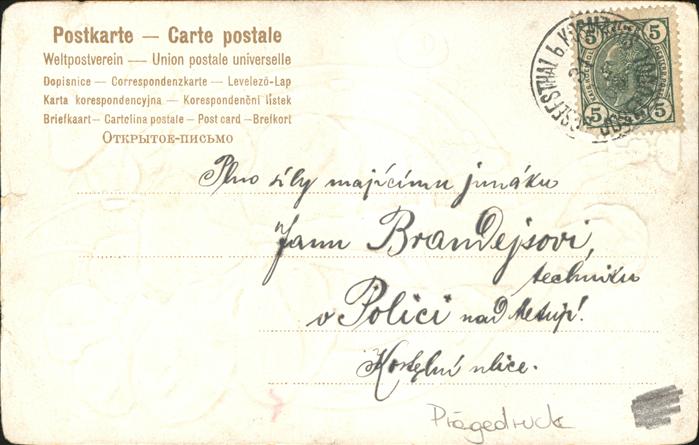 Postkarte — Carte postale
Weltpostverein — Union postale universelle
Dopisnice — Correspondenzkarte — Levelező-Lap
Karta korespondencyjna — Korespondenční lístek
Briefkaart — Cartelina postale — Post card — Brefkort
Открытое-письмо
5 5
5 5
JOSEFSTHAL b.
Plno síly majícímu junáku
Janu Brandejsovi,
techniku
v Polici nad Metují!
Kostelní ulice.
Prägedruck